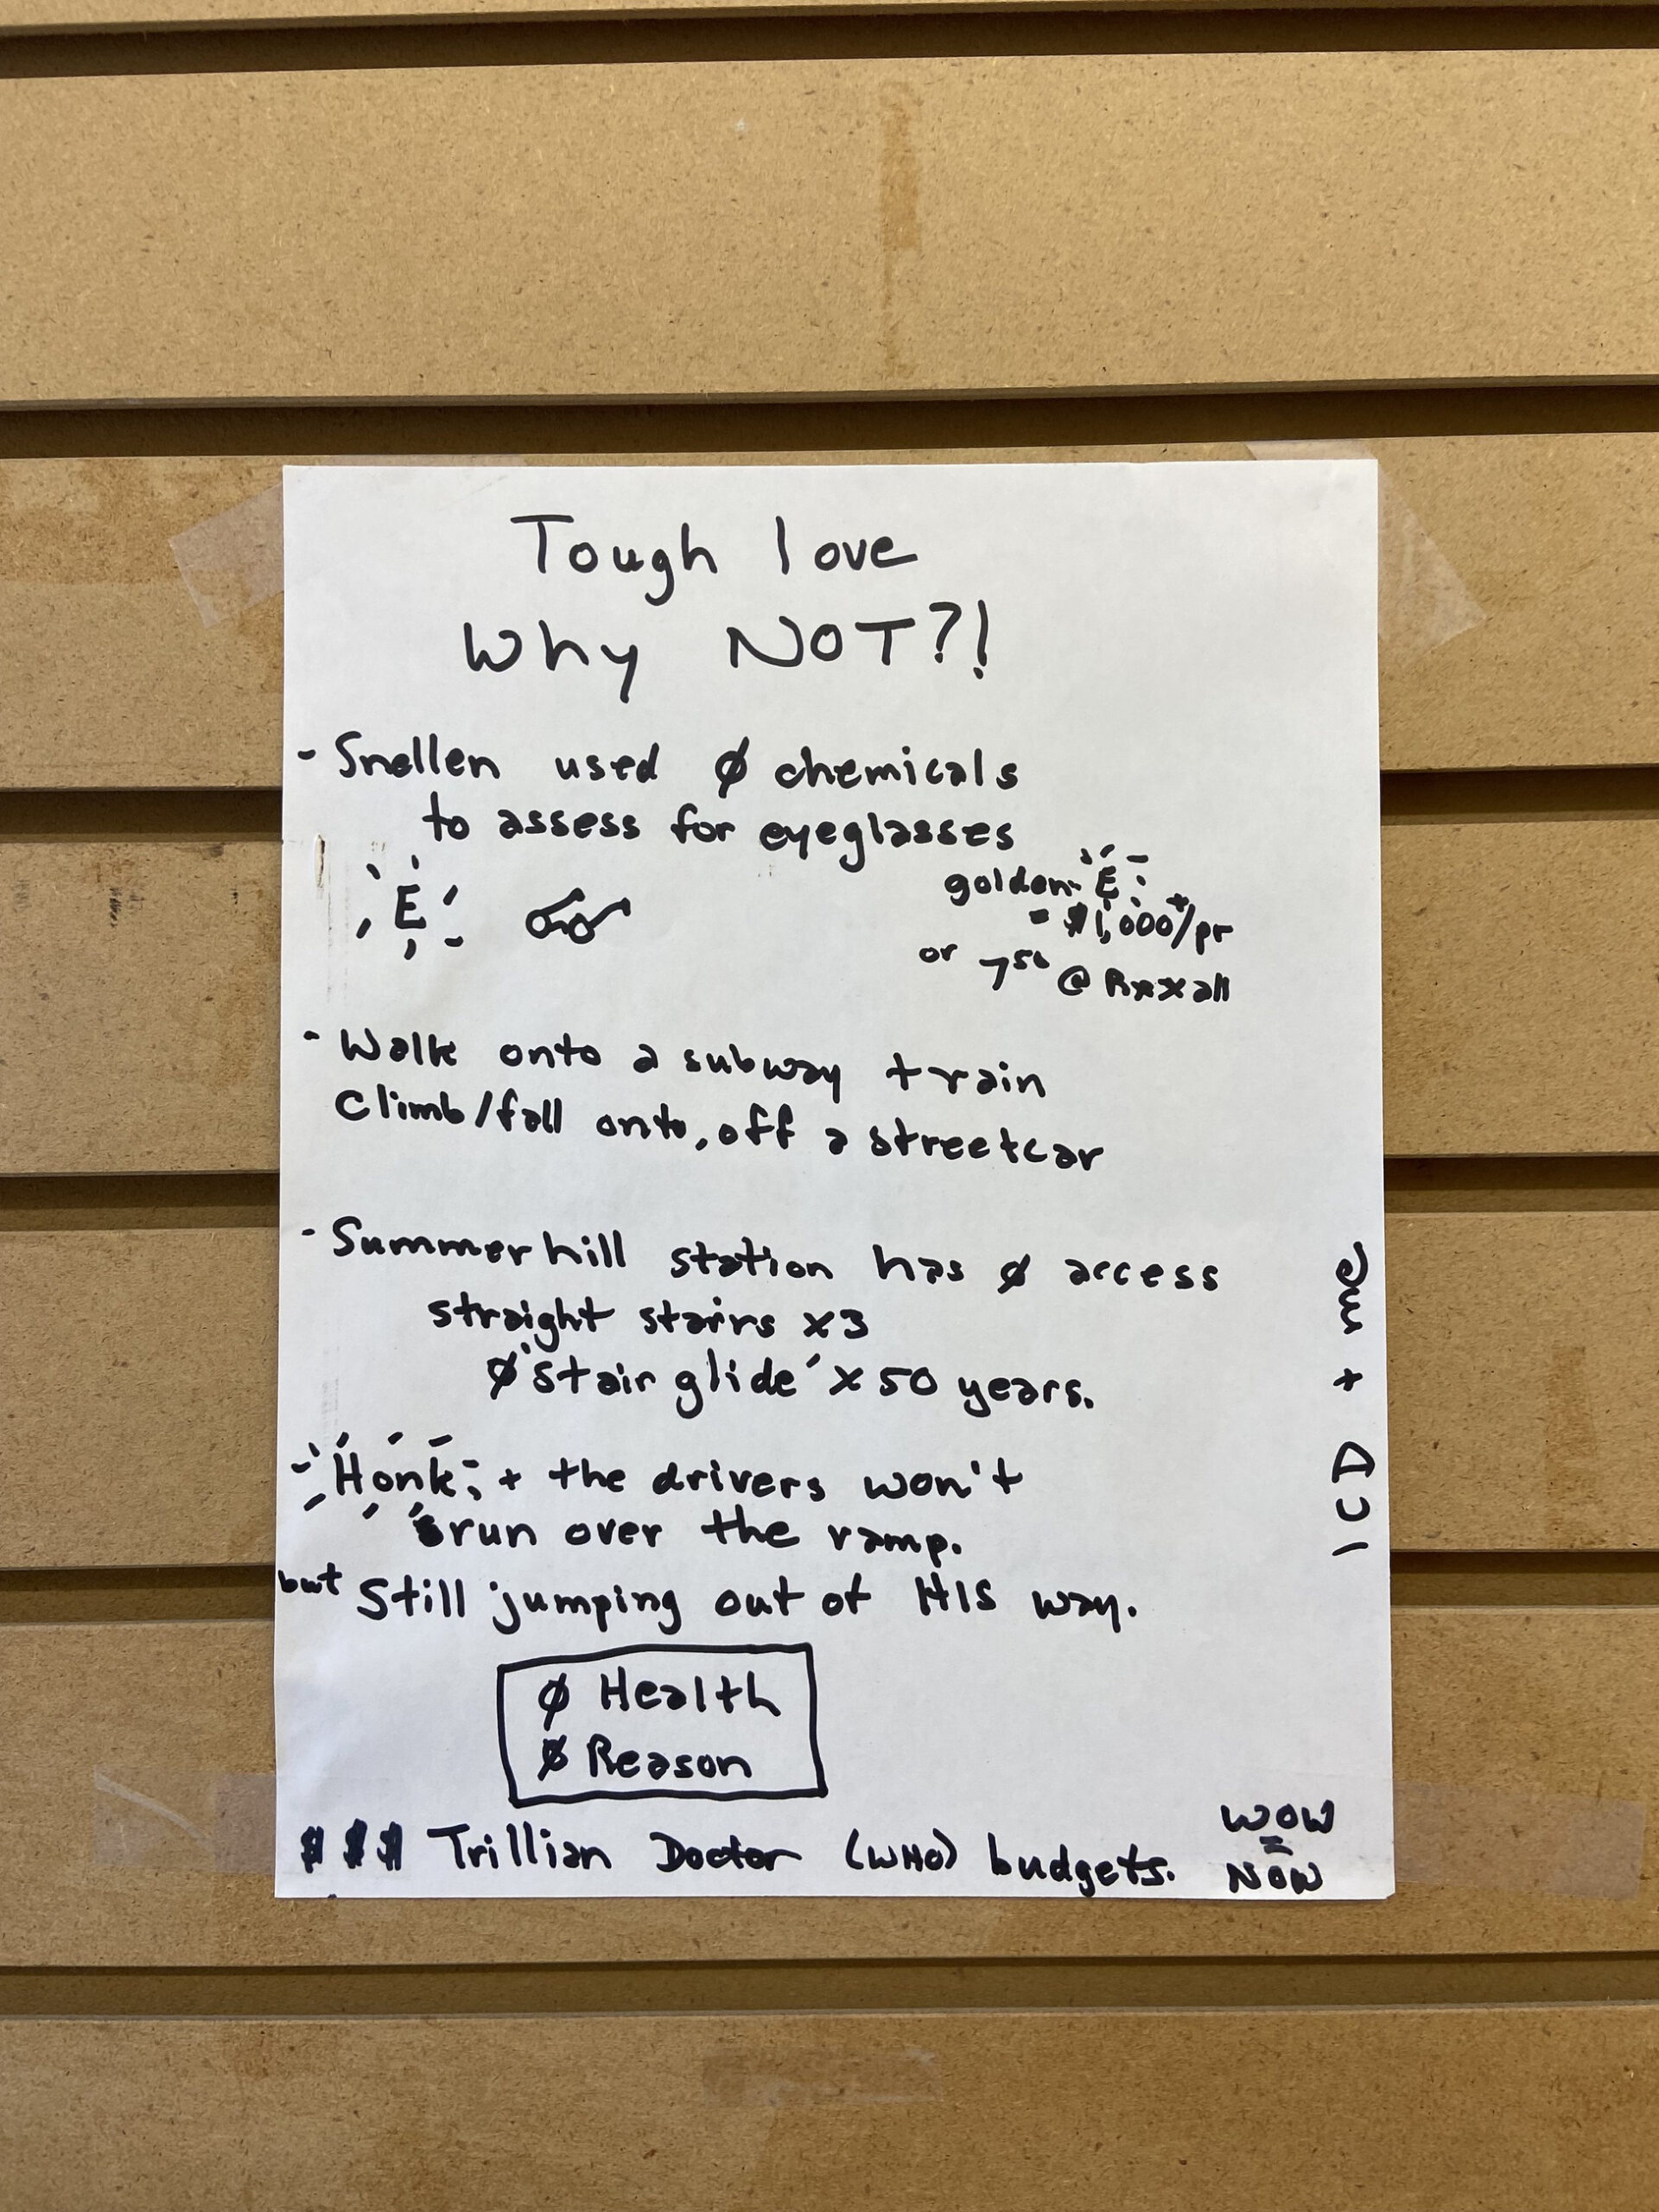 Tough love
Why NOT?!
- Snellen used ∅ chemicals
to assess for eyeglasses
E
golden E
= $1,000+/pr
or 7⁵⁰ @ Rxxall
- Walk onto a subway train
Climb/fall onto, off a streetcar
- Summerhill station has ∅ access
straight stairs x3
∅ 'stair glide' x 50 years.
Honk, + the drivers won't
run over the ramp.
but Still jumping out of HIS way.
∅ Health
∅ Reason
$ $ $ Trillian Doctor (WHO) budgets.
WOW
=
NOW
ICD + me